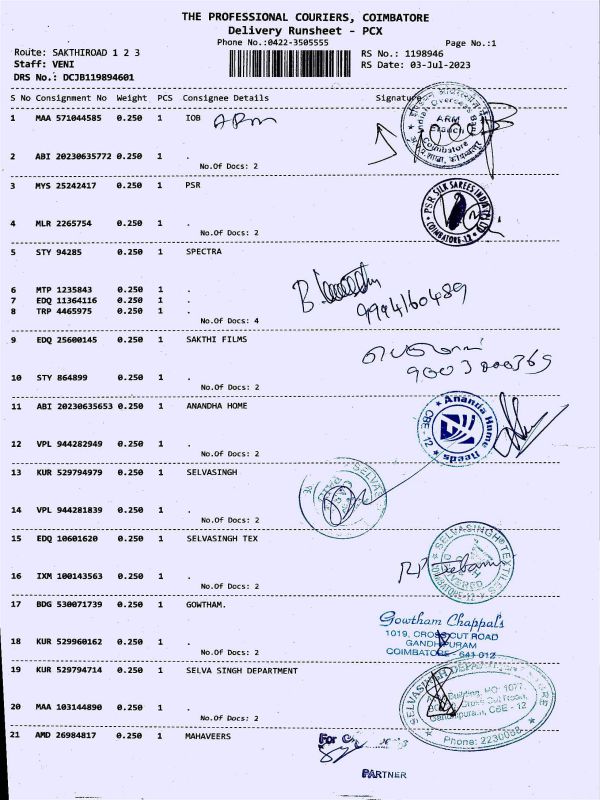 THE PROFESSIONAL COURIERS, COIMBATORE
Delivery Runsheet - PCX
Phone No.:0422-3505555
Page No.:1
Route: SAKTHIROAD 1 2 3
RS No.: 1198946
Staff: VENI
RS Date: 03-Jul-2023
DRS No.: DCJB119894601
S No Consignment No Weight PCS Consignee Details Signature
1 MAA 571044585 0.250 1 IOB ARM
Indian Overseas Bank ARM Branch Coimbatore
2 ABI 20230635772 0.250 1 .
No.Of Docs: 2
3 MYS 25242417 0.250 1 PSR
PSR SILK SAREES INDIA (P) LTD COIMBATORE-12
4 MLR 2265754 0.250 1 .
No.Of Docs: 2
5 STY 94285 0.250 1 SPECTRA
6 MTP 1235843 0.250 1 .
7 EDQ 11364116 0.250 1 .
8 TRP 4465975 0.250 1 .
9994160489
No.Of Docs: 4
9 EDQ 25600145 0.250 1 SAKTHI FILMS
10 STY 864899 0.250 1 .
No.Of Docs: 2
11 ABI 20230635653 0.250 1 ANANDHA HOME
Ananda Home Needs CBE - 12
12 VPL 944282949 0.250 1 .
No.Of Docs: 2
13 KUR 529794979 0.250 1 SELVASINGH
SELVASINGH
14 VPL 944281839 0.250 1 .
No.Of Docs: 2
15 EDQ 10601620 0.250 1 SELVASINGH TEX
SELVASINGH TEXTILES COIMBATORE-12
16 IXM 100143563 0.250 1 .
No.Of Docs: 2
17 BDG 530071739 0.250 1 GOWTHAM.
Gowtham Chappals
1019, CROSS CUT ROAD
GANDHIPURAM
COIMBATORE - 641 012
18 KUR 529960162 0.250 1
No.Of Docs: 2
19 KUR 529794714 0.250 1 SELVA SINGH DEPARTMENT
Building, PO: 1077,
Cross Cut Road,
Gandhipuram, CBE - 12
Phone: 2230058
20 MAA 103144890 0.250 1 .
No.Of Docs: 2
21 AMD 26984817 0.250 1 MAHAVEERS
For
PARTNER